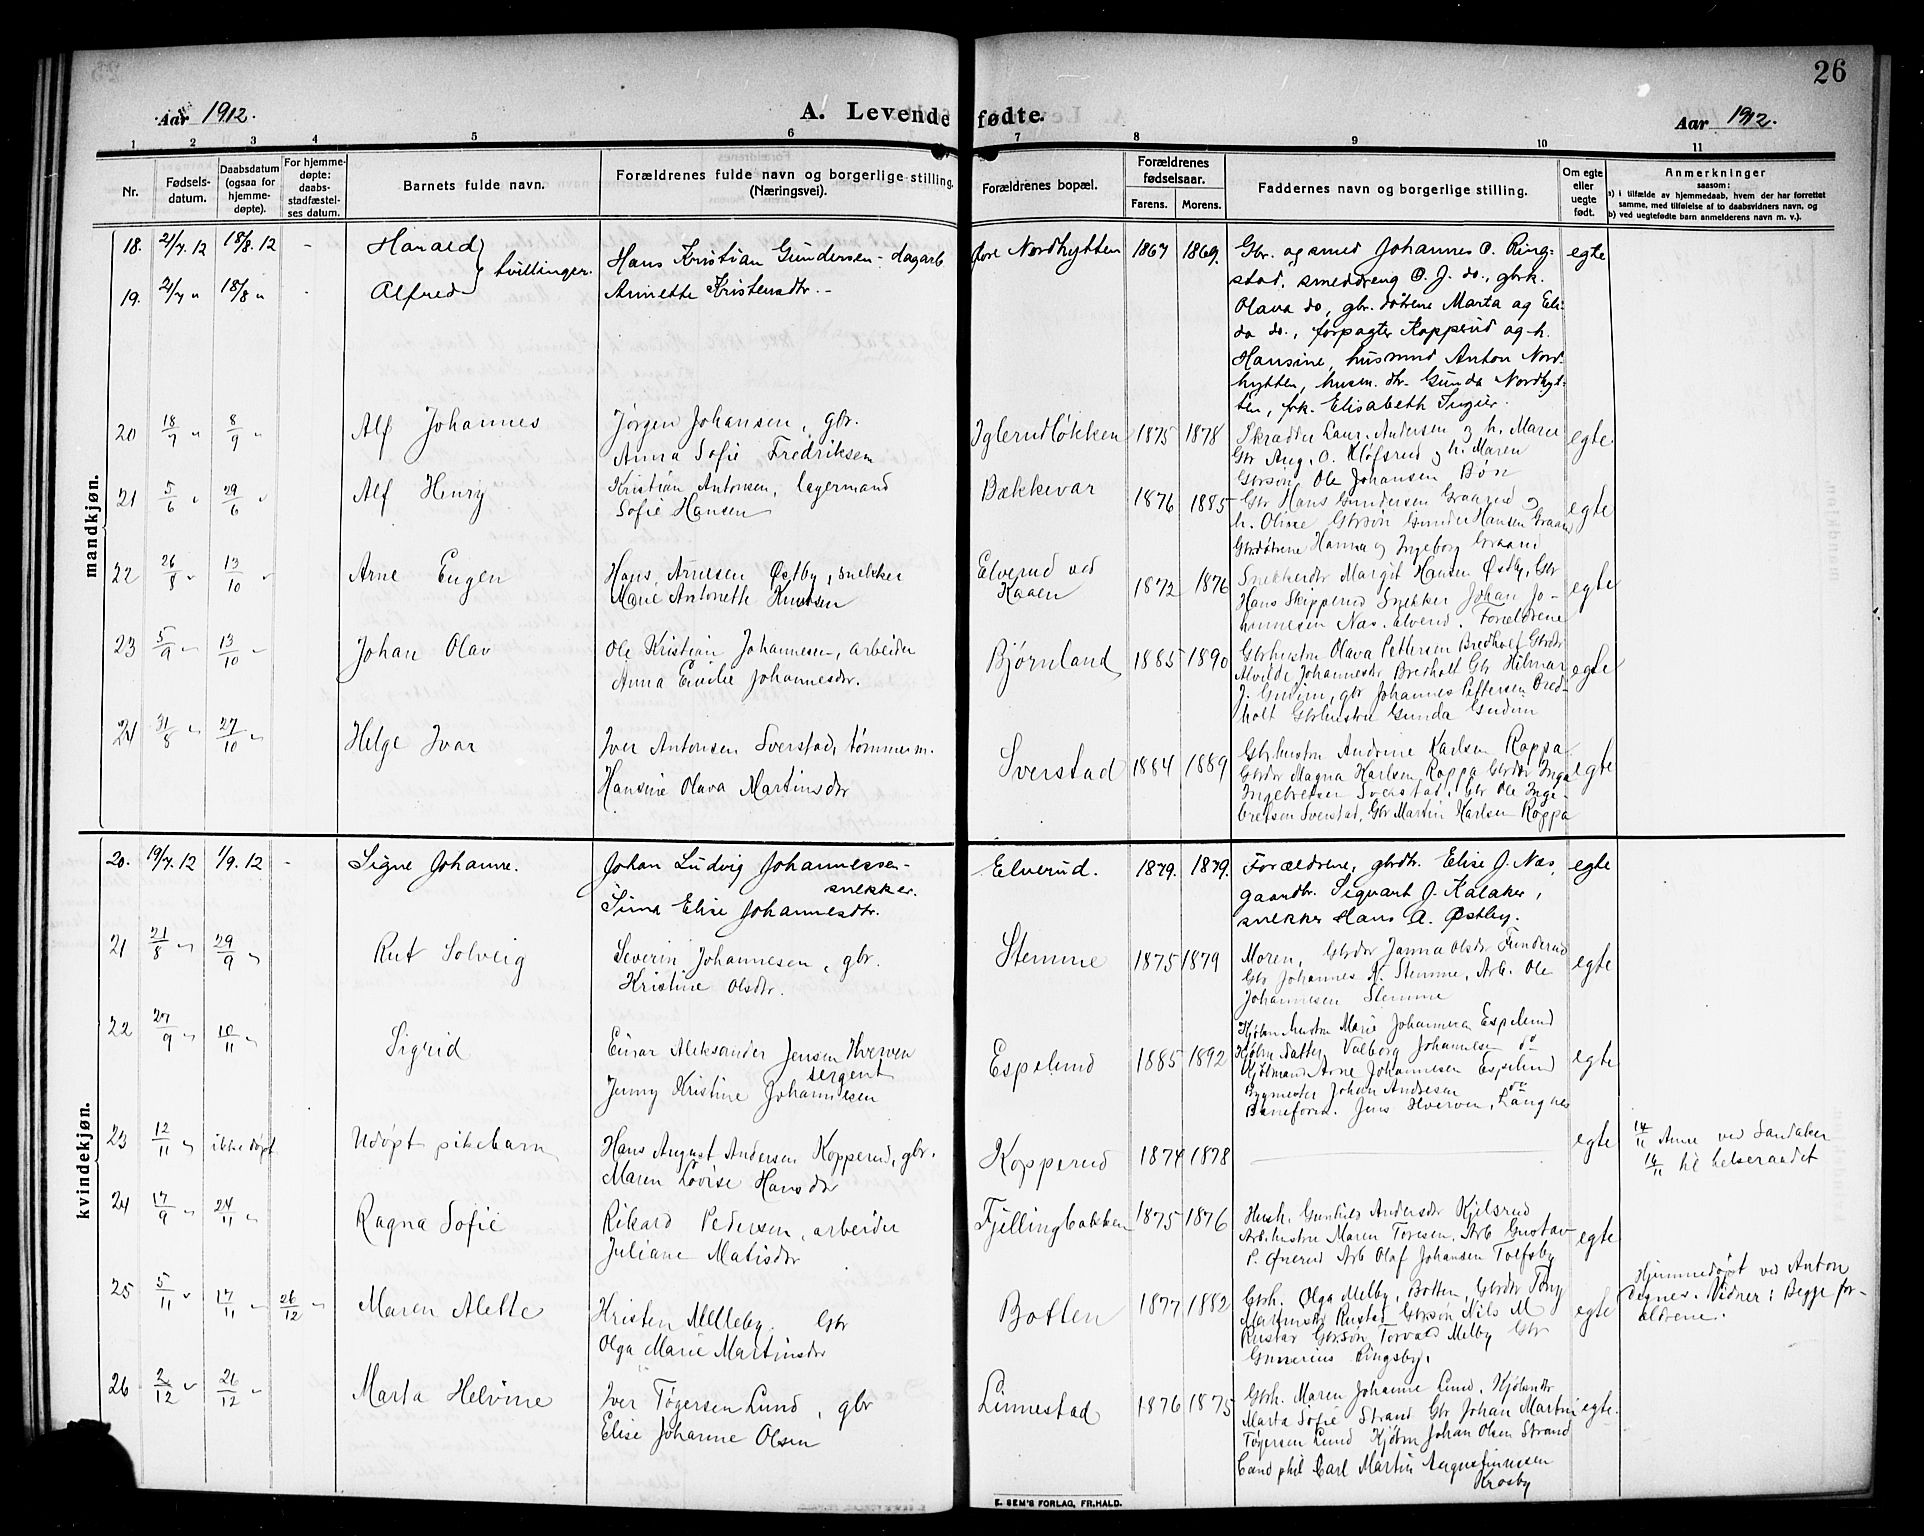 26
Aar 1912.
A. Levendefødte.
Aar 1912.
1 2 3 4 5 6 7 8 9 10 11
Nr.
Fødsels-
datum.
Daabsdatum
(ogsaa for
hjemme-
døpte).
For hjemme-
døpte:
daabs-
stadfæstel-
ses datum.
Barnets fulde navn.
Forældrenes fulde navn og borgerlige stilling.
(Næringsvei).
Forældrenes bopæl.
Forældrenes
fødselsaar.
Farens. Morens.
Faddernes navn og borgerlige stilling.
Om egte
eller
uegte
født.
Anmerkninger
saasom:
a) i tilfælde av hjemmedaab, hvem der har forrettet
samme, med tilføielse af to daabsvidners navn, og
b) ved uegtefødte barn anmelderens navn m. v.).
mandkjøn.
18. 21/7. 12 18/8. 12 - Harald } tvillinger.
Hans Kristian Gundersen - dagarb.
Øvre Nordhytten 1867 1869.
Gbr. og smed Johannes O. Ring-
stad, smeddreng O. J. do., gbrk.
Olava do, gbr. døtrene Marta og Eli-
da do., forpagter Kopperud og h.
Hansine, husmnd Anton Nord-
hytten, husm. dtr. Gunda Nordhyt-
ten, frk. Elisabeth
egte
19. 21/7 " 18/8 " - Alfred
Annette Kristensdtr. -
20 18/7 " 8/9 " Alf Johannes
Jørgen Johansen, gbr.
Anna Sofie Fredriksen
Iglerudløkken 1875 1878
Skrædder Laur. Andersen og h. Marie
Gbr Aug. O. Kløfsrud og h. Maren
Gbrsøn Ole Johansen Bøn
egte
21 5/6 " 29/6 " Alf Henry
Kristian Antonsen, lagermand
Sofie Hansen
Bækkevar 1876 1885
Gbr Hans Gundersen Graanud og
h. Oline Gbrsøn Gunder Hansen Graan
Gbrdøtrene Hanna og Ingeborg Graanud
egte
22 26/8 " 13/10 " Arne Eugen
Hans Arnesen Østby, snekker
Marie Antonette Knutsen
Elverud ved
Kaaen 1872 1876
Snekkerdtr Margit Hansen Østby, Gbr
Hans Skipperud Snekker Johan Jo-
hannesen Næs. elverud. Forældrene
egte
23 5/9 " 13/10 " Johan Olav
Ole Kristian Johannesen, arbeider
Anna Emilie Johannesdtr.
Bjørnland 1885 1890
Gbrhustru Olava Pettersen Bredholt Gbrdtr
Alvilde Johannesdtr Bredholt Gbr Hilmar
J. Gudim, gbr Johannes Pettersen Bred-
holt Gbrhustru Gunda Gudim
egte
24 31/8 " 27/10 " Helge Ivar
Iver Antonsen Sverstad, tømmerm.
Hansine Olava Martinsdtr
Sverstad 1884 1889
Gbrhustru Andrine Karlsen Roppa
Gbrdtr Magna Karlsen Roppa Gbrdtr Inga
Ingebretsen Sverstad. Gbr Ole Inge-
bretsen Sverstad, Gbr Martin Karlsen Roppa
egte
kvindekjøn.
20. 19/7. 12 1/9. 12 - Signe Johanne.
Johan Ludvig Johannessen -
snekker.
Sina Elise Johannesdtr.
Elverud. 1879. 1879.
Forældrene, gbrdtr. Elise J. Næs,
gaardbr. Sigvart J. Kalaker,
snekker Hans A. Østby.
egte
21 21/8 " 29/9 " Rut Solveig
Severin Johannesen, gbr.
Kristine Olsdtr.
Stemme 1875 1879
Moren, Gbrdtr Janna Olsdtr Funderud
Gbr Johannes N. Stemme, Arb. Ole
Johannesen Stemme
egte
22 27/9 " 10/11 " Sigrid
Einar Aleksander Jensen Hverven
sergent
Jenny Kristine Johannesen
Espelund 1885 1892
Kjøbm. hustru Marie Johannesen Espelund
Kjøbm. datter Valborg Johannesen do
Kjøbmand Arne Johannesen Espelund
Bygmester Johan Andresen do
Baneform. Jens Hverven, Langnes
egte
23 12/11 " ikke døpt Udøpt pikebarn
Hans August Andersen Kopperud, gbr.
Maren Lovise Hansdtr
Kopperud 1874 1878
egte
14/11 Anm. ved Sandaker
16/11 til helseraadet
24 17/9 " 24/11 " Ragna Sofie
Rikard Pedersen, arbeider
Juliane Matisdtr
Fjellingbakken 1875 1876
Hush. Gunhild Andersdtr Kjelsrud
Arb. hustru Maren Toresen, Arb Gustav
P. Ørerud Arb Olaf Johansen Tolfsby
egte
25 5/11 " 17/11 " 26/12 " Maren Alette
Kristen Melleby. Gbr
Olga Marie Martinsdtr
Botten 1877 1882
Gbrh. Olga Melby, Botten, Gbrdtr Tony
Martinsdtr Rustad Gbrsøn Nils M
Rustad Gbrsøn Torvald Melby Gbr
Gunerius Ringsby.
egte
Hjemmedøpt ved Anton
Tegnes. Vidner: Begge for-
ældrene.
26 2/12 " 26/12 " Marta Helvine
Iver Tøgersen Lund, gbr
Elise Johanne Olsen
Linnestad 1876 1875
Gbrh. Maren Johanne Lund, Kjøbmdtr
Marta Sofie Strand Gbr Johan Martin
Tøgersen Lund Kjøbm Johan Olsen Strand
Cand phil Carl Martin Augustinussen
Krosby
egte.
E. SEM'S FORLAG, FR.HALD.